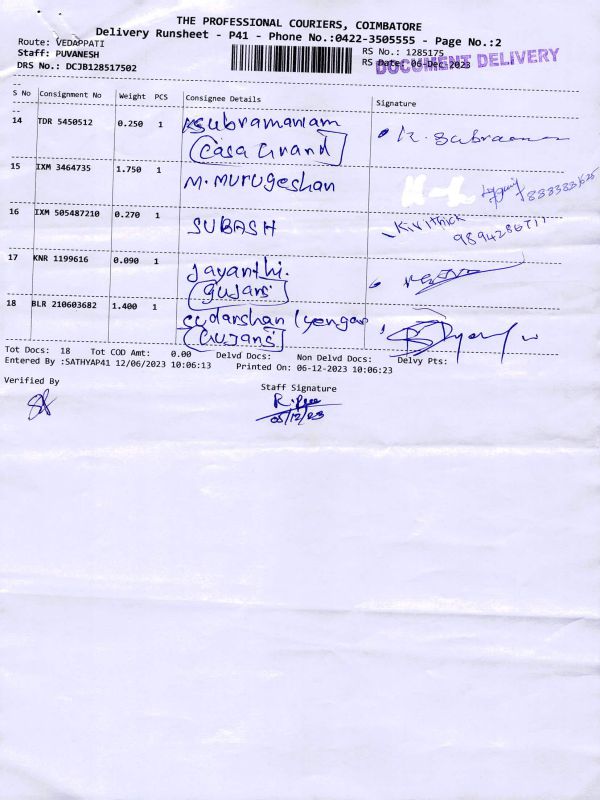 THE PROFESSIONAL COURIERS, COIMBATORE
Delivery Runsheet - P41 - Phone No.:0422-3505555 - Page No.:2
Route: VEDAPPATI
RS No.: 1285175
Staff: PUVANESH
RS Date: 06-Dec-2023
DOCUMENT DELIVERY
DRS No.: DCJB128517502
S No Consignment No Weight PCS Consignee Details Signature
14 TDR 5450512 0.250 1 K Subramaniam K. Subra
Casa Grand
15 IXM 3464735 1.750 1 M. Murugeshan
16 IXM 505487210 0.270 1 SUBASH Kirithick
9894286711
17 KNR 1199616 0.090 1 Jayanthi.
Gujans
18 BLR 210603682 1.400 1 Sudarshan Iyengar
Gujans
Tot Docs: 18 Tot COD Amt: 0.00 Delvd Docs: Non Delvd Docs: Delvy Pts:
Entered By :SATHYAP41 12/06/2023 10:06:13 Printed On: 06-12-2023 10:06:23
Verified By
Staff Signature